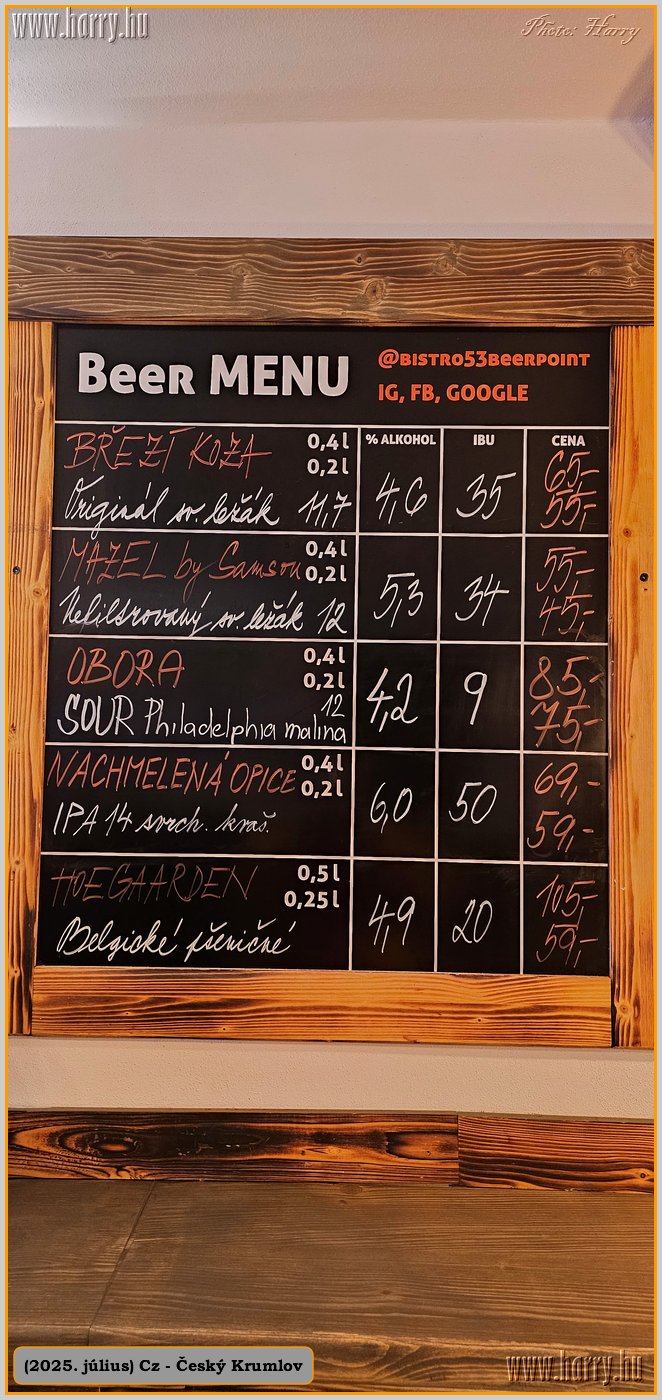 www.horry.hu
Photo: Horry
Beer MENU
@BISTRO53BEERPOINT
IG, FB, GOOGLE
% ALKOHOL IBU CENA
BŘEZÍ KOZA 0,4 l 65,-
0,2 l 55,-
Originál sv. ležák 11,7 4,6 35
MAZEL by Samson 0,4 l 55,-
0,2 l 45,-
Nefiltrovaný sv. ležák 12 5,3 34
OBORA 0,4 l 85,-
0,2 l 75,-
12
SOUR Philadelphia malina 4,2 9
NACHMELENÁ OPICE 0,4 l 69,-
0,2 l 59,-
IPA 14 svrch. kvaš. 6,0 50
HOEGAARDEN 0,5 l 105,-
0,25 l 59,-
Belgické pšeničné 4,9 20
(2025. július) Cz - Český Krumlov
www.horry.hu